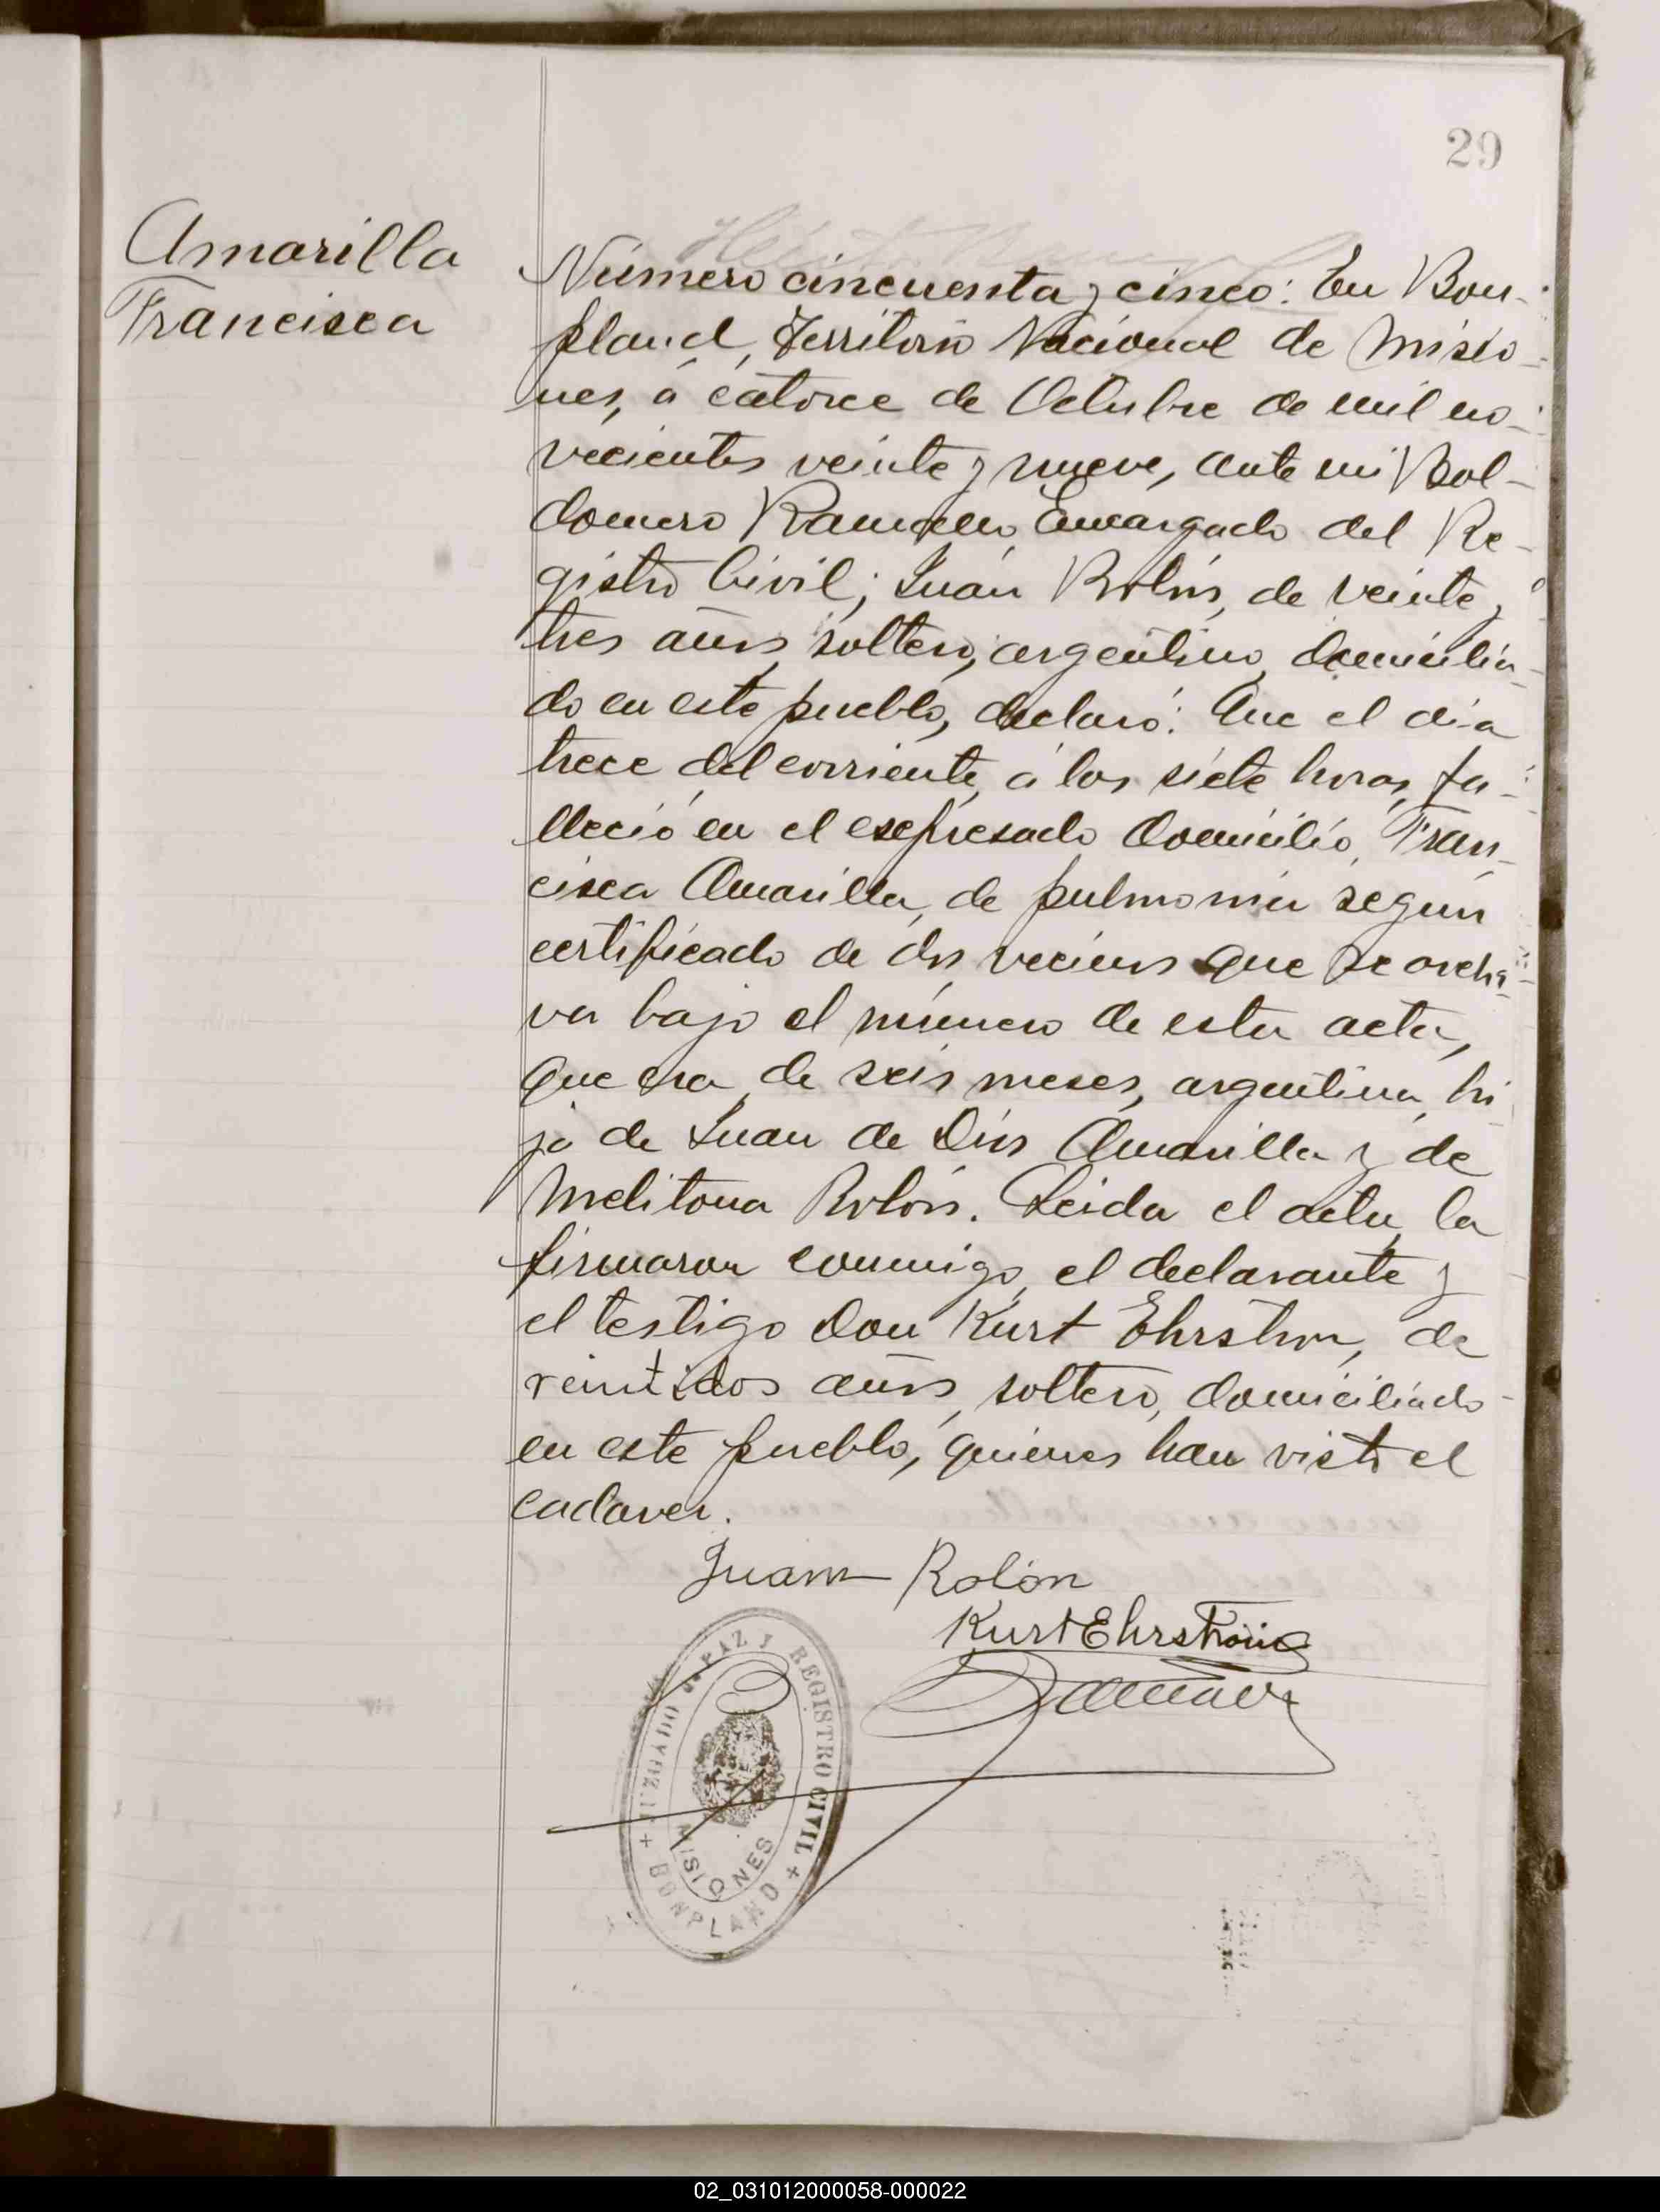 29
Amarilla
Francisca
Número cincuenta y cinco: En Bon-
pland, Territorio Nacional de Misio-
nes, á catorce de Octubre de mil no-
vecientos veinte y nueve, ante mi Bal-
domero Encargado del Re-
gistro Civil; Juan Rolón, de veinte y
tres años, soltero, argentino, domicilia-
do en este pueblo, declaró: Que el dia
trece del corriente, á las siete horas, fa-
lleció en el expresado domicilio, Fran-
cisca Amarilla, de pulmonia según
certificado de dos vecinos que se archi-
va bajo el número de esta acta,
que era de seis meses, argentina, hi-
ja de Juan de Dios Amarilla y de
Melitona Rolón. Leida el acta, la
firmaron conmigo, el declarante y
el testigo Don Kurt Ehrstrom, de
veintidos años, soltero, domiciliado
en este pueblo, quienes han visto el
cadaver.
Juan Rolón
Kurt Ehrström
JUZGADO de PAZ y REGISTRO CIVIL
MISIONES
+ BONPLAND +
02_031012000058-000022